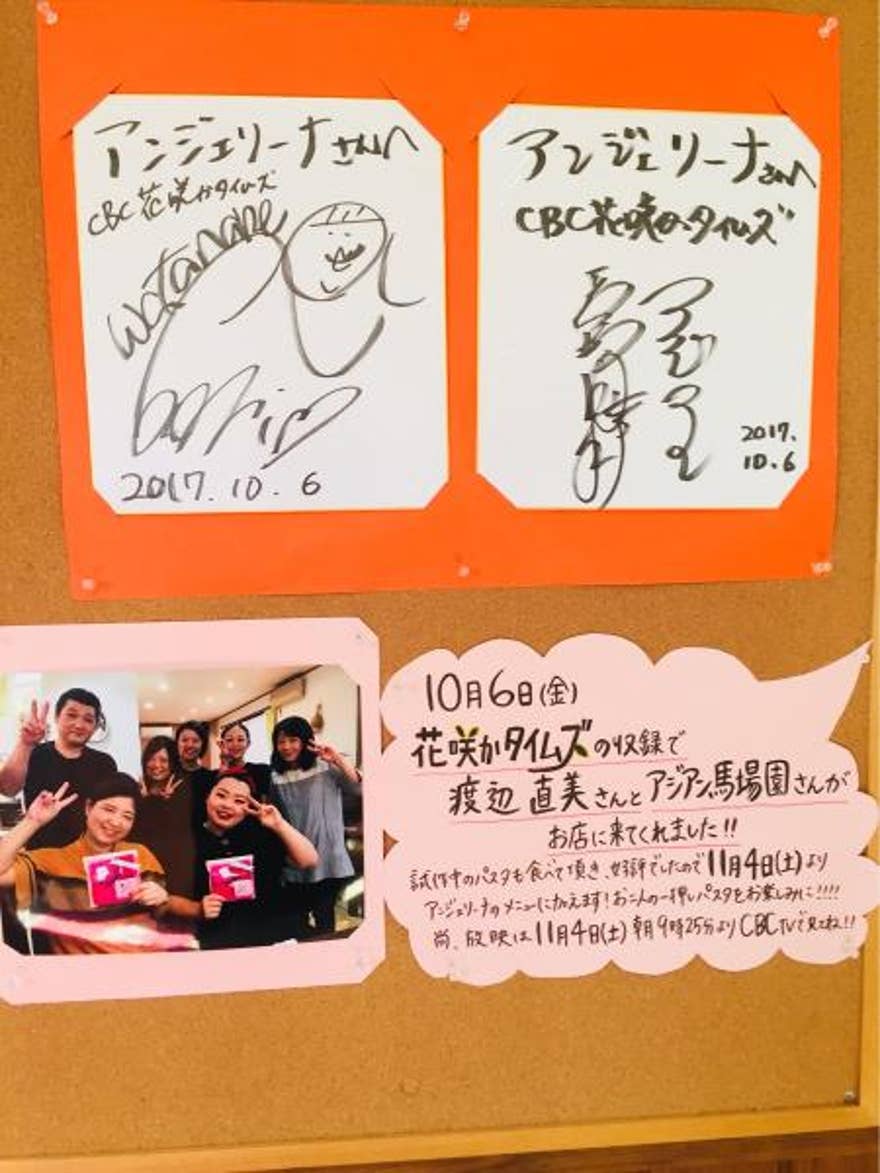 アンジェリーナさんへ
CBC花咲かタイムズ
watanabe
2017.10.6
アンジェリーナさんへ
CBC花咲かタイムズ
2017.
10.6
10月6日(金)
花咲かタイムズの収録で
渡辺 直美さんとアジアン馬場園さんが
お店に来てくれました!!
試作中のパスタも食べて頂き、好評でしたので11月4日(土)より
アンジェリーナのメニューに加えます!お二人の一押しパスタをお楽しみに!!!!
尚、放映は11月4日(土)朝9時25分よりCBCTVで見てね!!